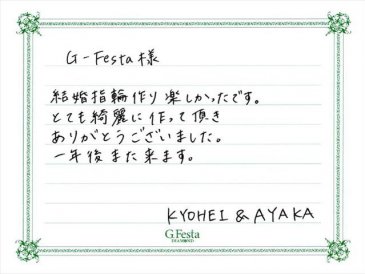 G-Festa様
結婚指輪作り楽しかったです。
とても綺麗に作って頂き
ありがとうございました。
一年後また来ます。
KYOHEI & AYAKA
G.Festa
DIAMOND